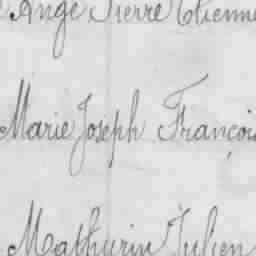 Ange Pierre Etienne
Marie Joseph François
Mathurin Julien